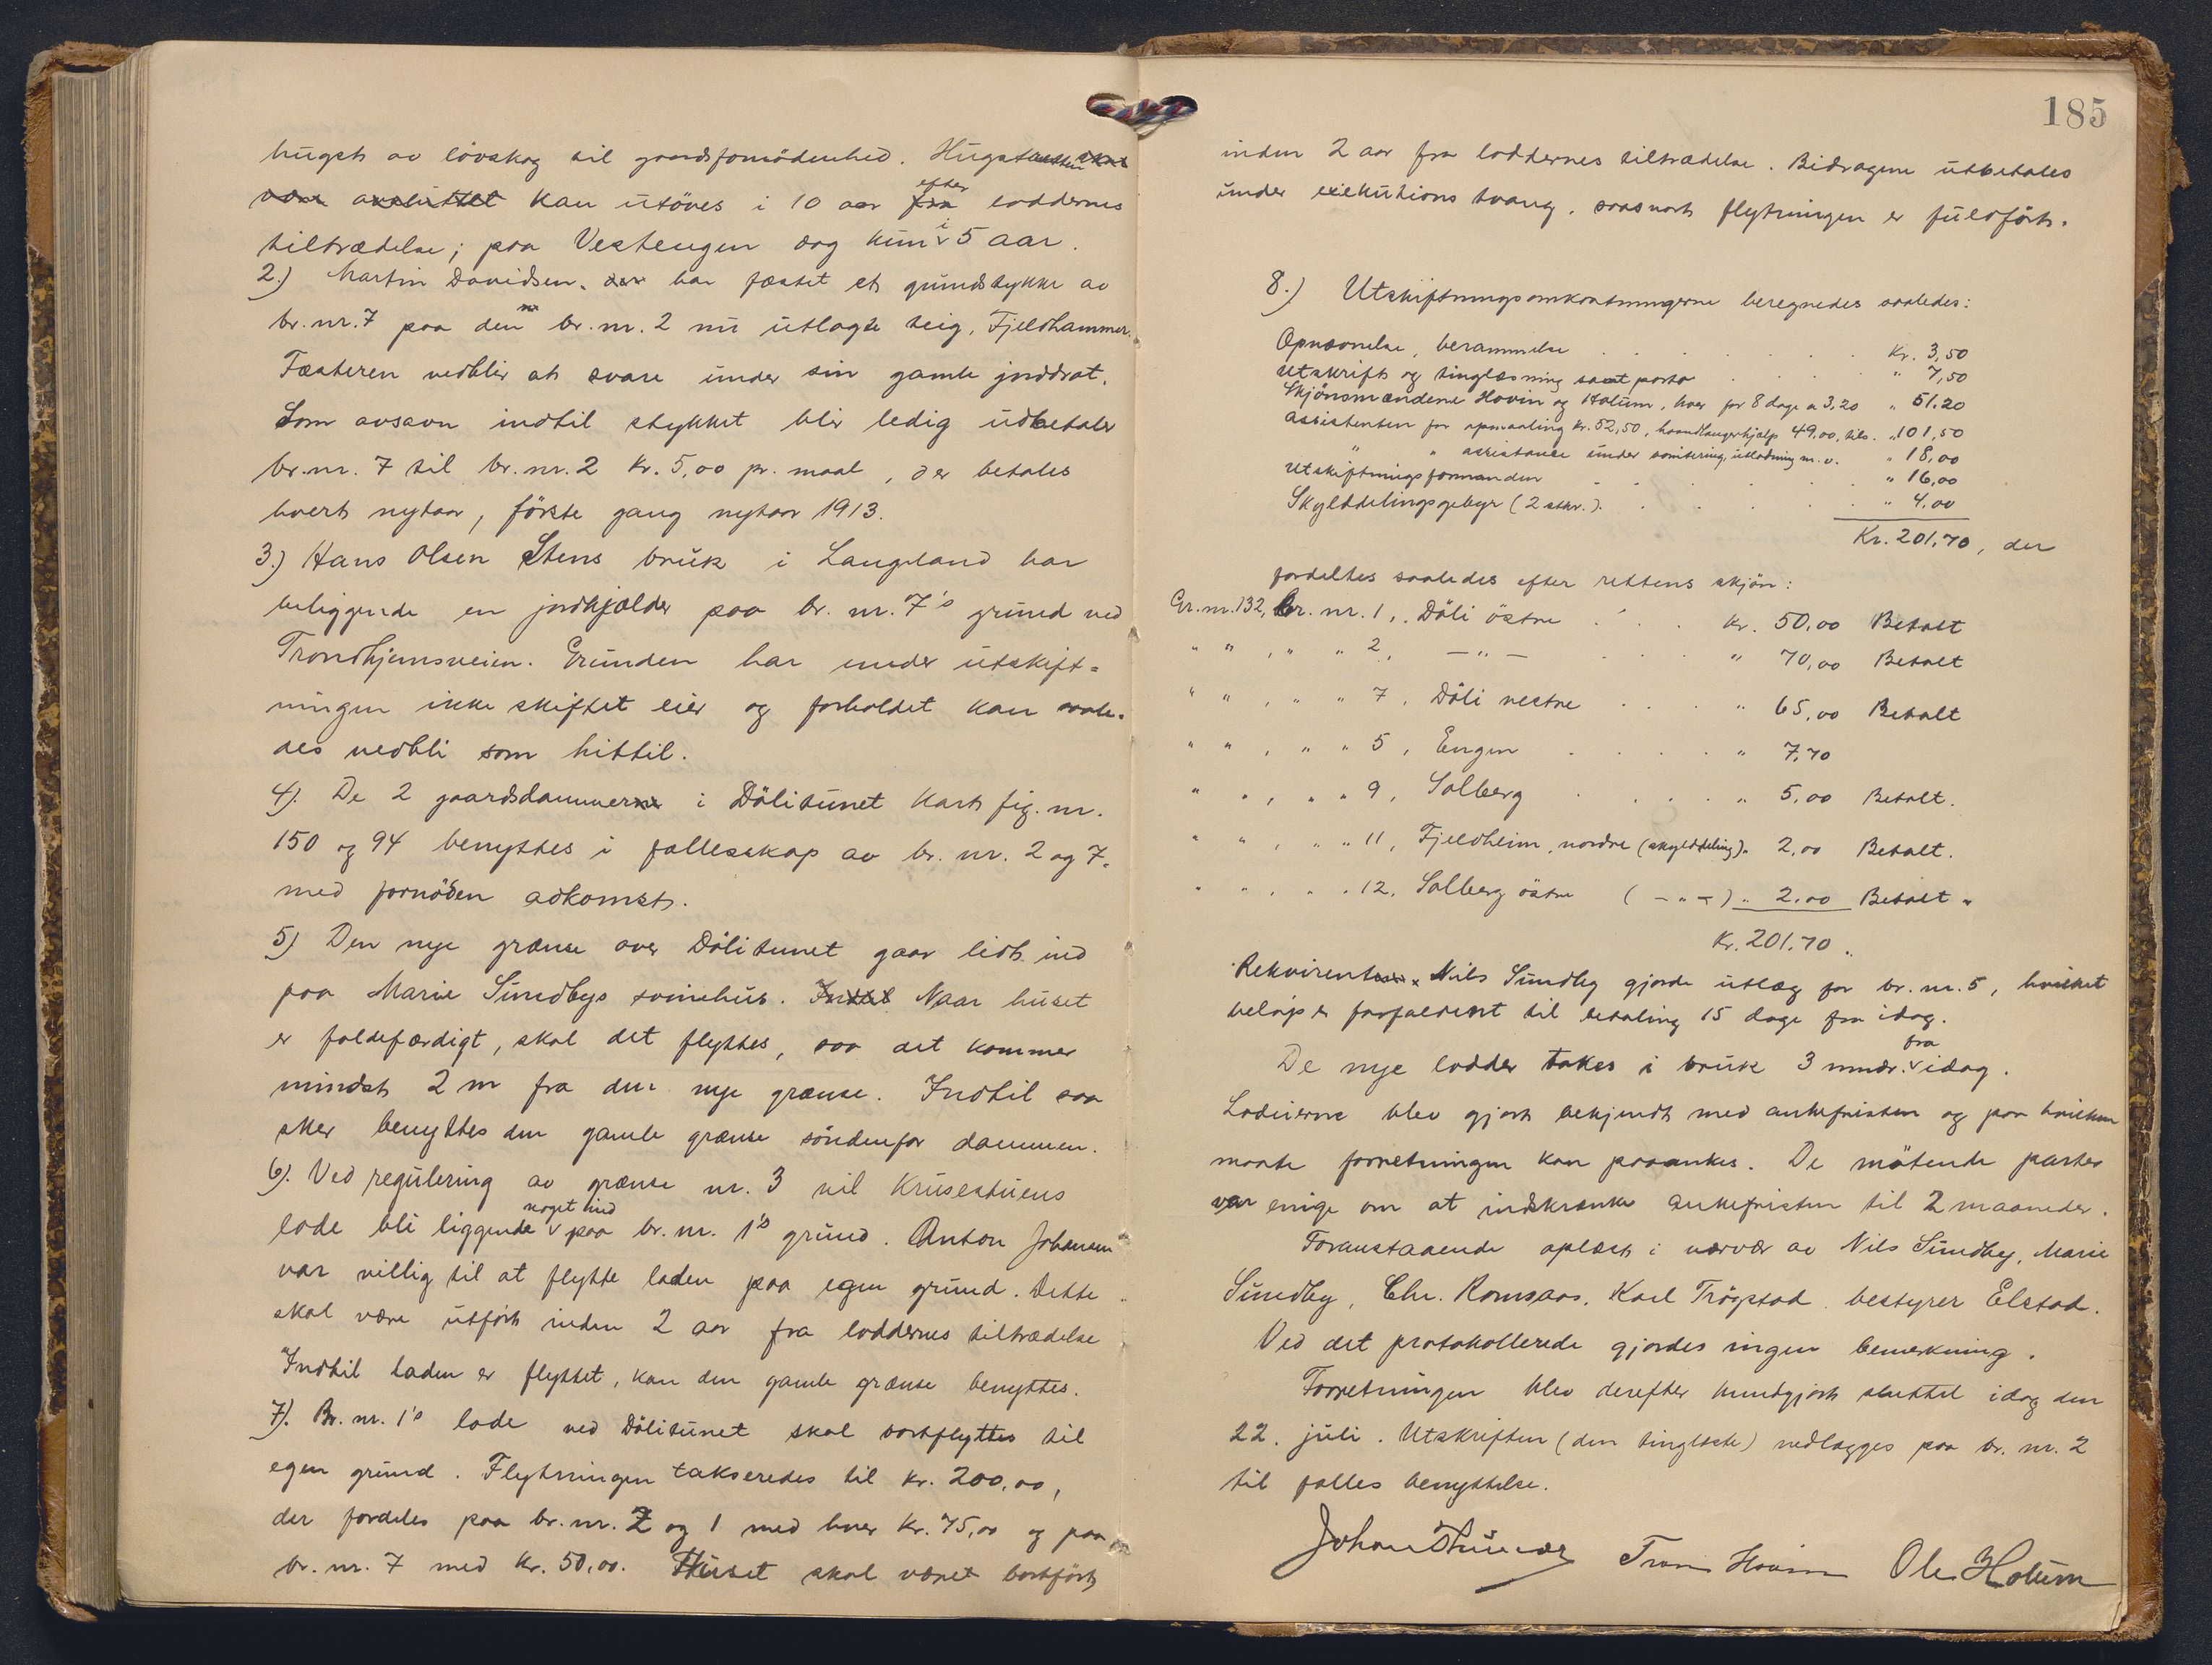 hugst av lövskog til gaardsfornödenhed. Hugsten skal
være avsluttet kan utöves i 10 aar fra efter loddernes
tiltrædelse; paa Vestengen dog kun i 5 aar.
2.) Martin Davidsen, der har fæstet et grundstykke av
br. nr. 7 paa den br. nr. 2 nu utlagte teig, Fjeldhammer.
Fæsteren vedblir at svare under sin gamle jorddrot.
Som avsavn indtil stykket blir ledig udbetaler
br. nr. 7 til br. nr. 2 kr. 5,00 pr. maal, der betales
hvert nytaar, förste gang nytaar 1913.
3.) Hans Olsen Stens bruk i Langeland har
beliggende en jordkjælder paa br. nr. 7's grund ved
Trondhjemsveien. Grunden har under utskift=
ningen ikke skiftet eier og forholdet kan saale=
des vedbli som hittil.
4). De 2 gaardsdammer i Dölitunet kart fig. nr.
150 og 94 benyttes i fællesskap av br. nr. 2 og 7.
med fornöden adkomst.
5) Den nye grænse over Dölitunet gaar lidt ind
paa Marie Sundbys svinehus. Indtil Naar huset
er faldefærdigt, skal det flyttes, saa det kommer
mindst 2 m fra den nye grænse. Indtil saa
sker benyttes den gamle grænse söndenfor dammen.
6). Ved regulering av grænse nr. 3 vil Krusestuens
lade bli liggende noget ind paa br. nr. 1's grund. Anton Johansen
var villig til at flytte laden paa egen grund. Dette
skal være utfört inden 2 aar fra loddernes tiltrædelse
Indtil laden er flyttet, kan den gamle grænse benyttes.
7). Br. nr. 1's lade ved Dölitunet skal bortflyttes til
egen grund. Flytningen takseredes til kr. 200,00,
der fordeles paa br. nr. 2 og 1 med hver kr. 75,00 og paa
br. nr. 7 med kr. 50,00. Huset skal været bortfört
185
inden 2 aar fra loddernes tiltrædelse. Bidragene utbetales
under exekutions tvang, saasnart flytningen er fuldfört.
8.) Utskiftningsomkostningerne beregnedes saaledes:
Opnævnelse, berammelse . . . . . . . kr. 3,50
Utskrift og tinglæsning samt porto . . . . " 7,50
Skjönsmændene Hovin og Holum, hver for 8 dage a 3,20 " 51.20
Assistenten for opmaaling kr. 52,50, haandlangerhjælp 49,00, tils. " 101,50
" " assistance under bonitering, utlodning m.v. " 18,00
Utskiftningsformanden . . . . . . " 16,00
Skylddelingsgebyr (2 stkr.). . . . . . " 4,00
Kr. 201,70, der
fordeltes saaledes efter rettens skjön:
Gr. nr. 132, Br. nr. 1, Döli östre . . . kr. 50,00 Betalt
" " , " " 2, — " — . . . " 70,00 Betalt
" " , " " 7, Döli vestre . . . " 65,00 Betalt
" " , " " 5, Engen . . . . " 7,70
" " , " " 9, Solberg . . . . " 5,00 Betalt.
" " , " " 11, Fjeldheim, nordre (skylddeling) " 2,00 Betalt.
" " , " " 12, Solberg östre ( — " — ) " 2,00 Betalt "
Kr. 201.70.
Rekvirenten Nils Sundby gjorde utlæg for br. nr. 5, hvilket
belöp er forfaldent til betaling 15 dage fra idag.
De nye lodder takes i bruk 3 mndr. fra idag.
Lodeierne blev gjort bekjendt med ankefristen og paa hvilken
maate forretningen kan paaankes. De mötende parter
var enige om at indskrænke ankefristen til 2 maaneder.
Foranstaaende oplæst i nærvær av Nils Sundby, Marie
Sundby, Chr. Romsaas, Karl Trögstad, bestyrer Elstad.
Ved det protokollerede gjordes ingen bemerkning.
Forretningen blev derefter kundgjort sluttet idag den
22. juli. Utskriften (den tinglæste) nedlægges paa br. nr. 2
til fælles benyttelse.
Hovin Ole Holum